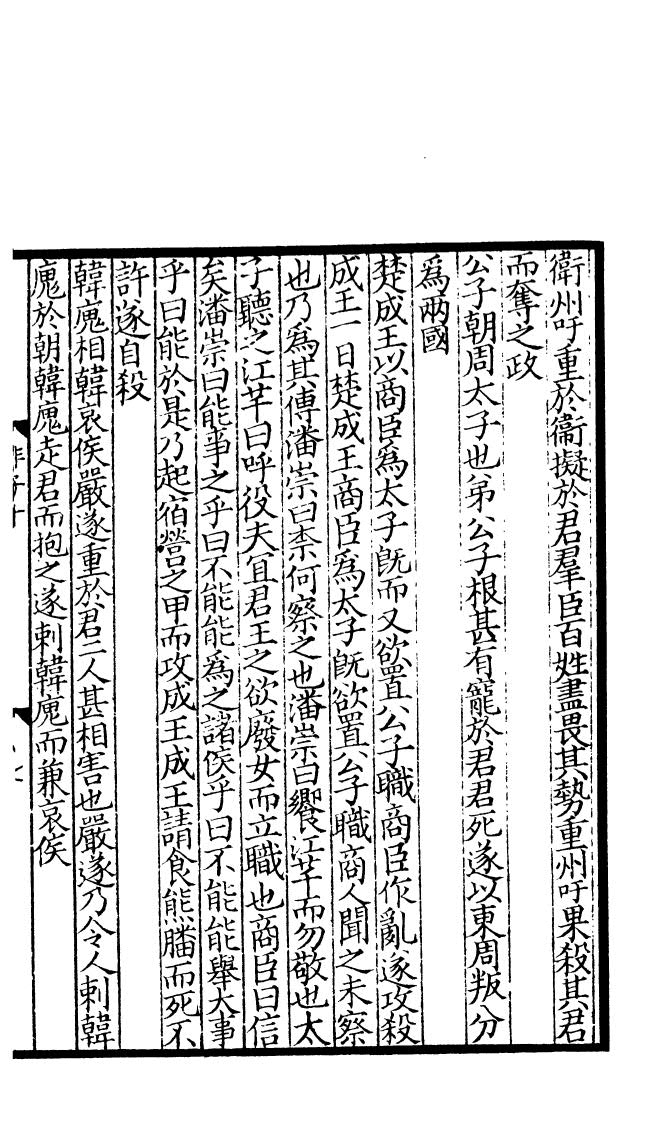 衛州吁重於衞擬於君羣臣百姓盡畏其勢重州吁果殺其君
而奪之政
公子朝周太子也弟公子根甚有寵於君君死遂以東周叛分
爲兩國
楚成王以商臣爲太子旣而又欲置公子職商臣作亂遂攻殺
成王一曰楚成王商臣爲太子旣欲置公子職商人聞之未察
也乃爲其傅潘崇曰柰何察之也潘崇曰饗江芊而勿敬也太
子聽之江芊曰呼役夫宜君王之欲廢女而立職也商臣曰信
矣潘崇曰能事之乎曰不能能爲之諸侯乎曰不能能舉大事
乎曰能於是乃起宿營之甲而攻成王成王請食熊膰而死不
許遂自殺
韓廆相韓哀侯嚴遂重於君二人甚相害也嚴遂乃令人刺韓
廆於朝韓廆走君而抱之遂刺韓廆而兼哀侯